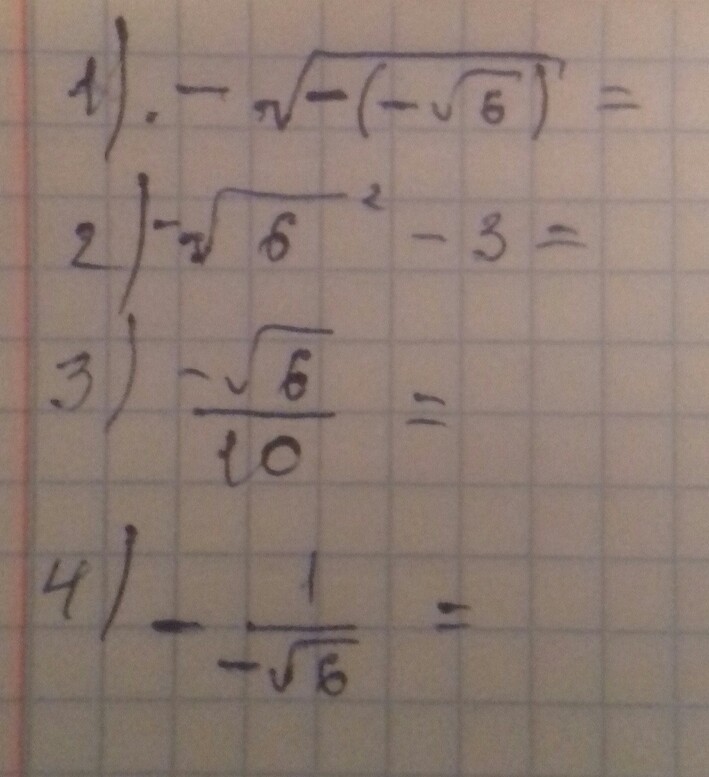 1). -√(-(-√6)) =
2) -√6² - 3 =
3) -√6/10 =
4) - 1/(-√6) =